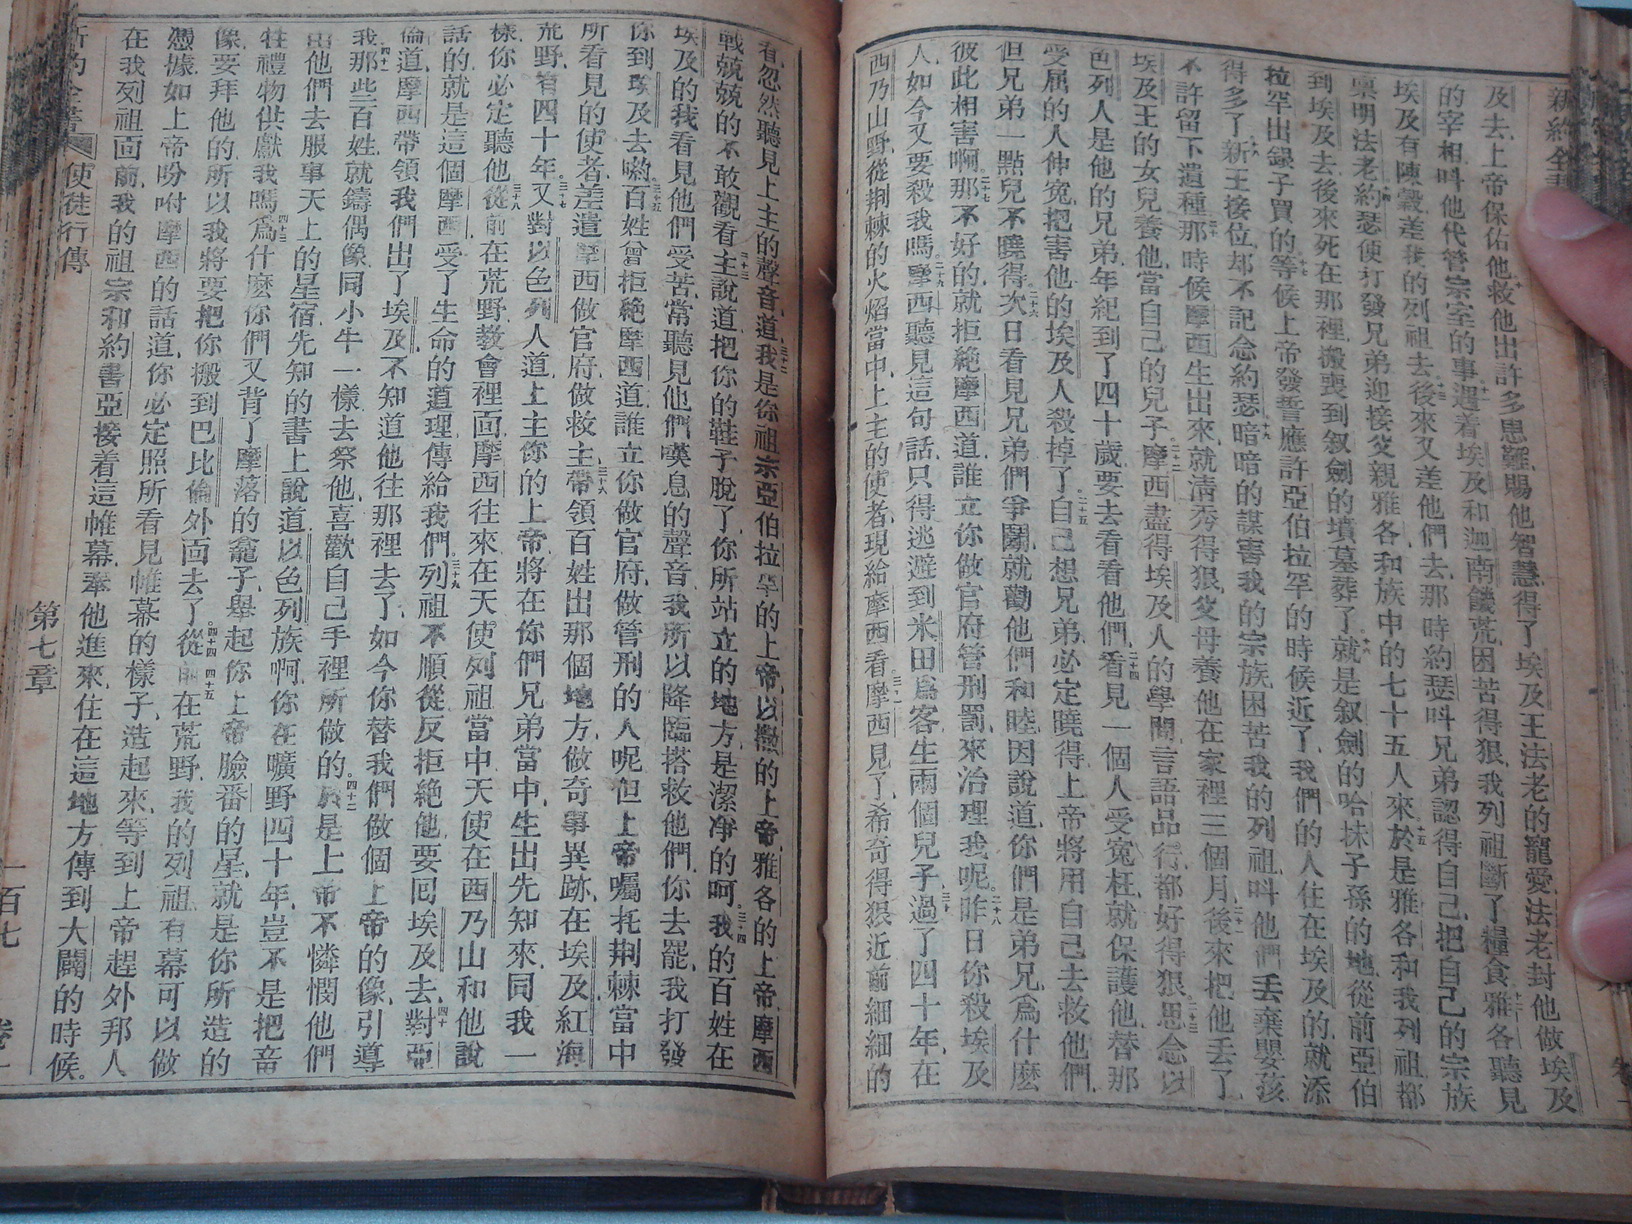 新約全書
及去、上帝保佑他、救他出許多患難、賜他智慧、得了埃及王法老的寵愛、法老封他做埃及
的宰相、呌他代管宗室的事、遇着埃及和迦南饑荒、困苦得狠、我列祖斷了糧食、雅各聽見
埃及有陳穀、差我的列祖去、後來又差他們去、那時約瑟呌兄弟認得自己、把自己的宗族
稟明法老、約瑟便打發兄弟迎接父親雅各、和族中的七十五人來、於是雅各和我列祖都
到埃及去、後來死在那裡、搬喪到叙劍的墳墓葬了、就是叙劍的哈抹子孫的地、從前亞伯
拉罕出銀子買的、等候上帝發誓應許亞伯拉罕的時候近了、我們的人住在埃及的就添
得多了、新王接位、却不記念約瑟、暗暗的謀害我的宗族、困苦我的列祖、呌他們丟棄嬰孩、
不許留下遺種、那時候摩西生出來、就清秀得狠、父母養他在家裡三個月、後來把他丟了、
埃及王的女兒養他、當自己的兒子、摩西盡得埃及人的學問、言語品行、都好得狠、思念以
色列人是他的兄弟、年紀到了四十歲、要去看看他們、看見一個人受寃枉、就保護他、替那
受屈的人伸寃、把害他的埃及人殺掉了、自己想兄弟必定曉得上帝將用自己去救他們、
但兄弟一點兒不曉得、次日看見兄弟們爭鬭、就勸他們和睦、因說道、你們是弟兄、爲什麼
彼此相害啊、那不好的、就拒絶摩西道、誰立你做官府管刑罰、來治理我呢、昨日你殺埃及
人、如今又要殺我嗎、摩西聽見這句話、只得逃避到米田爲客、生兩個兒子、過了四十年、在
西乃山野、從荆棘的火焰當中、上主的使者、現給摩西看、摩西見了、希奇得狠、近前細細的
看、忽然聽見上主的聲音道、我是你祖宗亞伯拉罕的上帝、以撒的上帝、雅各的上帝、摩西
戰兢兢的不敢觀看、主說道、把你的鞋子脫了、你所站立的地方、是潔凈的呵、我的百姓在
埃及的、我看見他們受苦、常聽見他們嘆息的聲音、我所以降臨搭救他們、你去罷、我打發
你到埃及去啲、百姓曾拒絶摩西道、誰立你做官府、做管刑的人呢、但上帝囑托荆棘當中
所看見的使者、差遣摩西做官府、做救主、帶領百姓出那個地方、做奇事異跡、在埃及紅海
荒野、有四十年、又對以色列人道、上主你的上帝、將在你們兄弟當中、生出先知來、同我一
樣、你必定聽他、從前在荒野教會裡面、摩西往來在天使列祖當中、天使在西乃山和他說
話的、就是這個摩西、受了生命的道理、傳給我們、列祖不順從、反拒絶他、要囘埃及去、對亞
倫道、摩西帶領我們出了埃及、不知道他往那裡去了、如今你替我們做個上帝的像、引導
我、那些百姓就鑄偶像、同小牛一樣、去祭他、喜歡自己手裡所做的、於是上帝不憐憫他們、
由他們去服事天上的星宿、先知的書上說道、以色列族啊、你在曠野四十年、豈不是把畜
牲禮物供獻我嗎、爲什麼你們又背了摩落的龕子、舉起你上帝臉番的星、就是你所造的
像、要拜他的、所以我將要把你搬到巴比倫外面去了、從前在荒野、我的列祖、有幕可以做
憑據、如上帝吩咐摩西的話道、你必定照所看見帷幕的樣子、造起來、等到上帝趕外邦人
在我列祖面前、我的祖宗和約書亞、接着這帷幕、奉他進來、住在這地方、傳到大闢的時候。
新約全書 使徒行傳 第七章 一百七